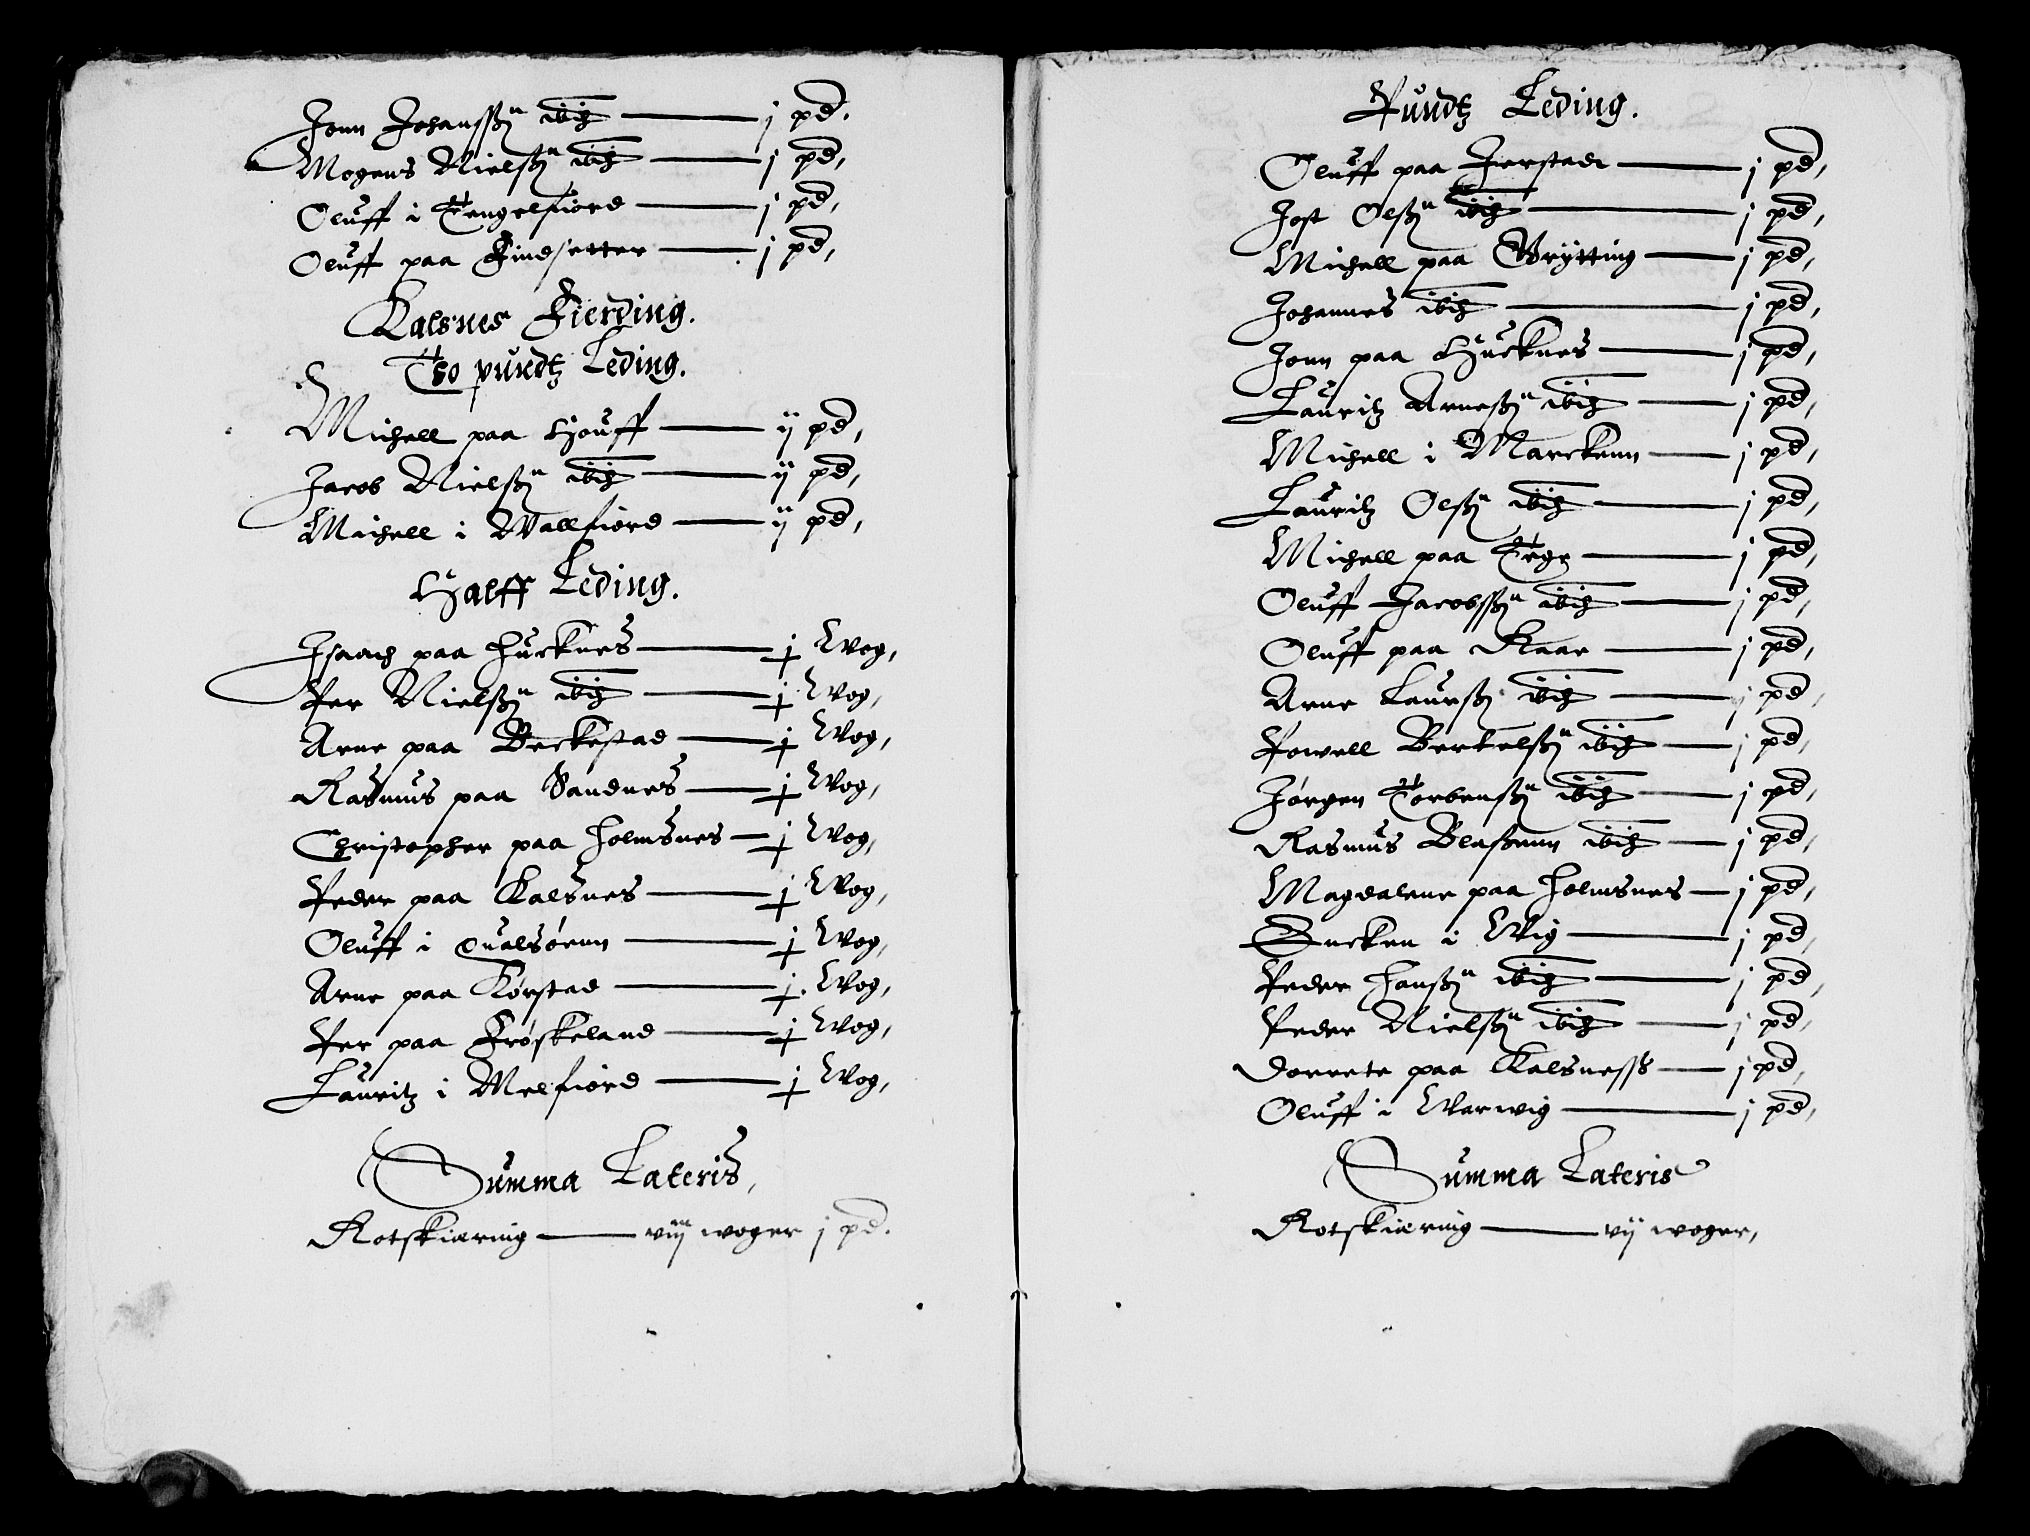 Jonn Johanssßn ibid — j pd.
Mogens Nielsßn ibid — j pd,
Oluff i Tengelfiord — j pd,
Oluff paa Findsetter — j pd,
Kalsnes Fierding.
Tho pundtz Leding.
Michell paa Houff — ij pd,
Jacob Nielsßn ibid — ij pd,
Michell i Wallfiord — ij pd,
Halff Leding.
Isaach paa Hucknes — j Wog,
Per Nielsßn ibid — j Wog,
Arne paa Beckestad — j Wog,
Rasmus paa Sandnes — j Wog,
Christopher paa Holmsnes — j Wog,
Peder paa Kalsnes — j Wog,
Oluff i Qualsøenn — j Wog,
Arne paa Kørstad — j Wog,
Per paa Frøskeland — j Wog,
Lauritz i Melfiord — j Wog,
Summa Lateris,
Rotskiæring — viij woger j pd.
Pundtz Leding.
Oluff paa Fierstad — j pd,
Jost Olsßn ibid — j pd,
Michell paa Brytting — j pd,
Johannes ibid — j pd,
Jonn paa Hucknes — j pd,
Lauritz Arnesßn ibid — j pd,
Michell i Marckenn — j pd,
Lauritz Olsßn ibid — j pd,
Michell paa Tege — j pd,
Oluff Jacobsßn ibid — j pd,
Oluff paa Raar — j pd,
Arne Laursßn ibid — j pd,
Powell Bertelsßn ibid — j pd,
Jørgen Torbensßn ibid — j pd,
Rasmus Blaßenn ibid — j pd,
Magdalene paa Holmsnes — j pd,
Encken i Wig — j pd,
Peder Hansßn ibid — j pd,
Peder Nielsßn ibid — j pd,
Dorrete paa Kalsness — j pd,
Oluff i Warwig — j pd,
Summa Lateris
Rotskiæring — vij woger,